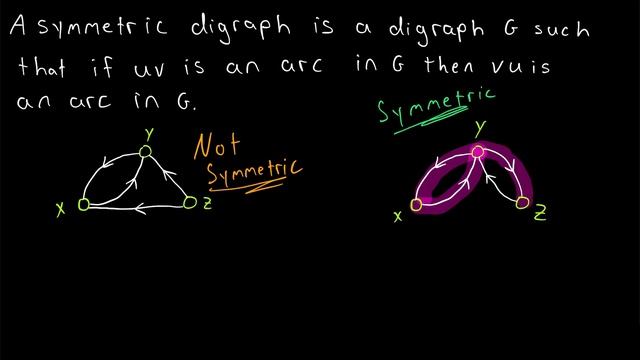 A symmetric digraph is a digraph G such
that if uv is an arc in G then vu is
an arc in G.
Symmetric
Y
Not
Symmetric
X
Z
Y
X
Z